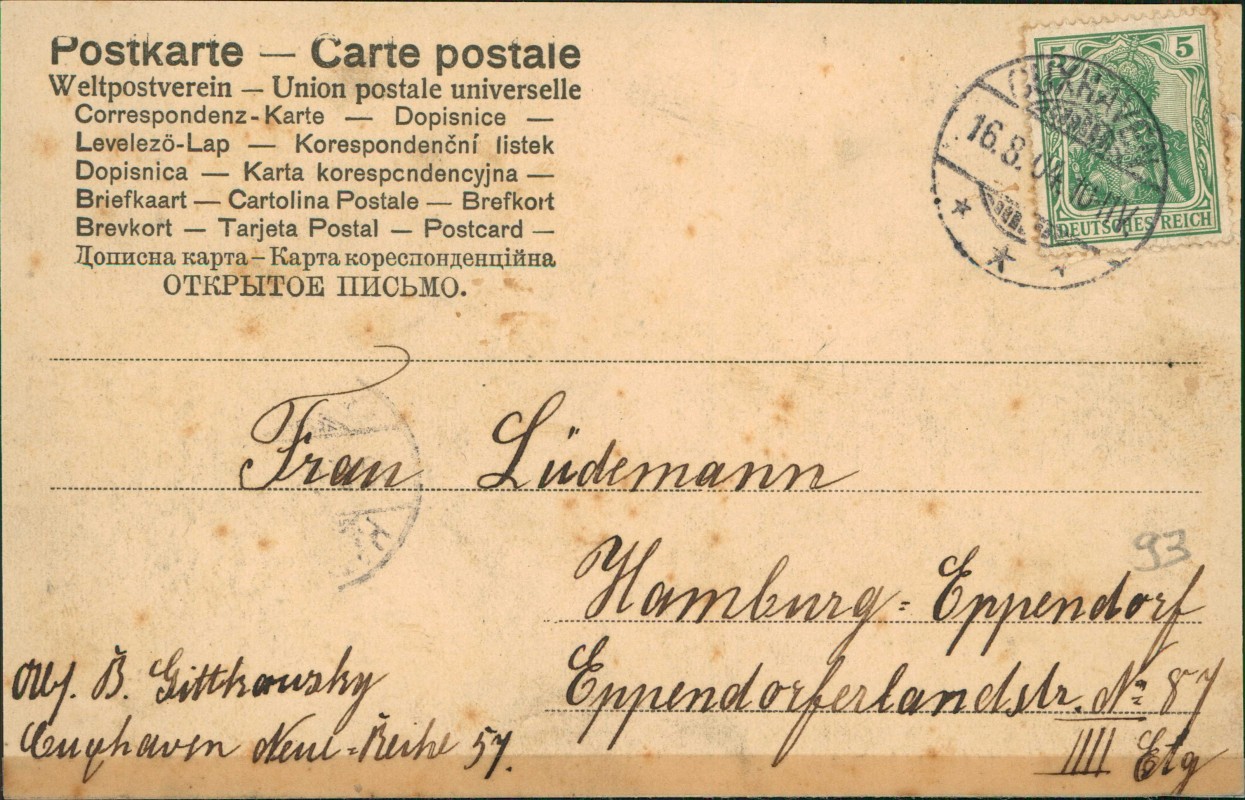 Postkarte — Carte postale
Weltpostverein — Union postale universelle
Correspondenz-Karte — Dopisnice —
Levelezö-Lap — Korespondenční lístek
Dopisnica — Karta korespcndencyjna —
Briefkaart — Cartolina Postale — Brefkort
Brevkort — Tarjeta Postal — Postcard —
Дописна карта — Карта кореспонденційна
ОТКРЫТОЕ ПИСЬМО.
5 5
DEUTSCHES REICH
CUXHAVEN
16.8.04. 10-11V.
Frau Lüdemann
93
Hamburg = Eppendorf
Eppendorferlandstr. No 87
IIII Etg
Abs. B. Gittkowsky
Cuxhaven Neue = Reihe 57.